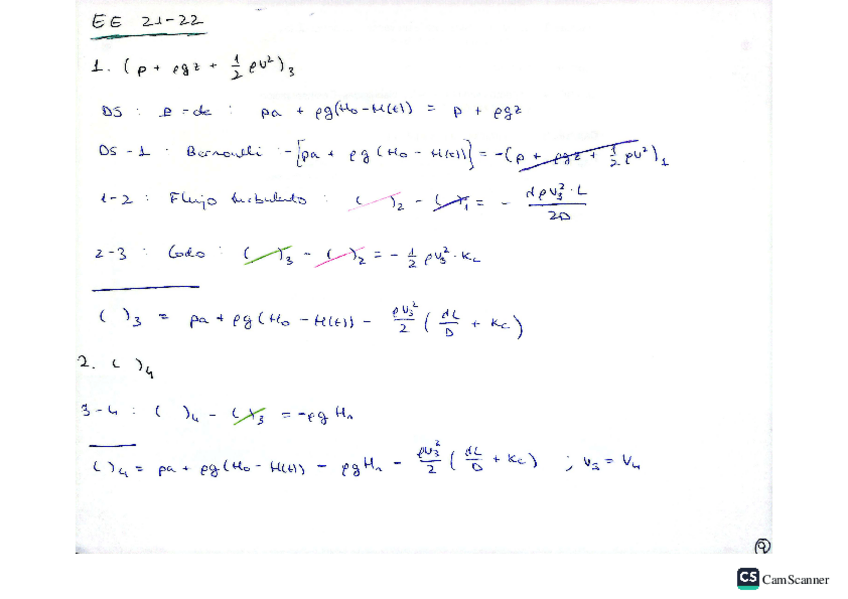 EE 21-22
1. (p + ρgz + 1/2 ρv²)₃
DS : e-de : pa + ρg(H₀-H(t)) = p + ρgz
DS-1 : Bernoulli : -[pa + ρg(H₀ - H(t))] = -(p + ρgz + 1/2 ρv²)₁
1-2 : Flujo turbulento : ( )₂ - ( )₁ = - λρv₃²·L / 2D
2-3 : Codo : ( )₃ - ( )₂ = - 1/2 ρv₃²·Kc
( )₃ = pa + ρg(H₀ - H(t)) - ρv₃²/2 (λL/D + Kc)
2. ( )₄
3-4 : ( )₄ - ( )₃ = -ρg H₁
( )₄ = pa + ρg(H₀ - H(t)) - ρgH₁ - ρv₃²/2 (λL/D + Kc) ; v₃ = v₄
9
CS CamScanner